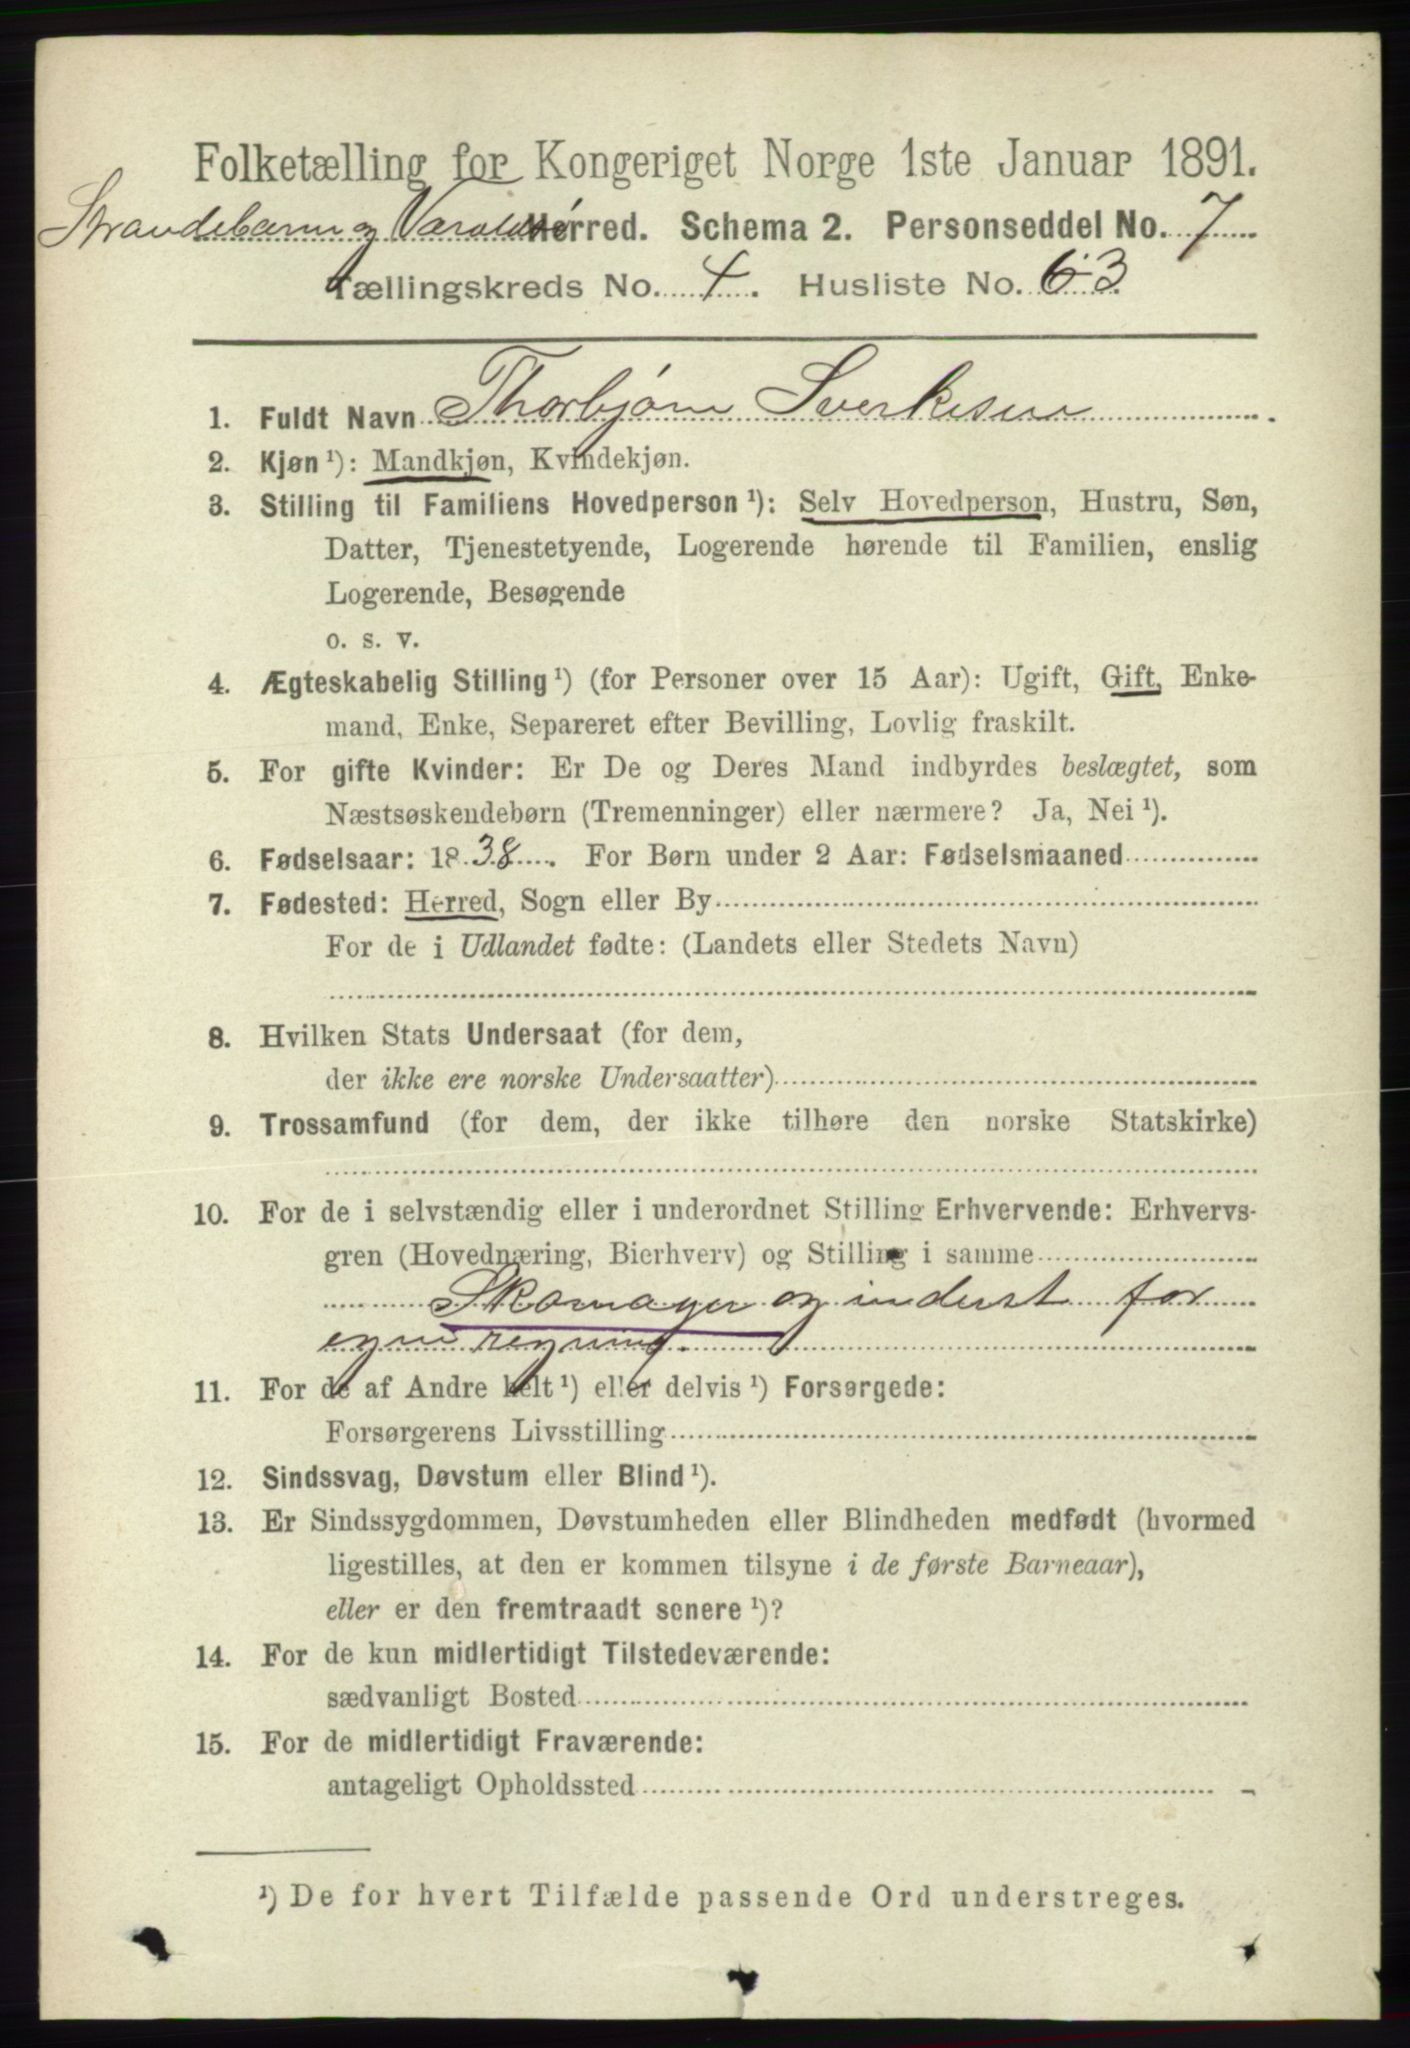 Folketælling for Kongeriget Norge 1ste Januar 1891.
Strandebarm og Varaldsø Herred. Schema 2. Personseddel No. 7
Tællingskreds No. 4. Husliste No. 63
1. Fuldt Navn Thorbjørn Sverkesen
2. Kjøn ¹): Mandkjøn, Kvindekjøn.
3. Stilling til Familiens Hovedperson ¹): Selv Hovedperson, Hustru, Søn,
Datter, Tjenestetyende, Logerende hørende til Familien, enslig
Logerende, Besøgende
o. s. v.
4. Ægteskabelig Stilling ¹) (for Personer over 15 Aar): Ugift, Gift, Enke-
mand, Enke, Separeret efter Bevilling, Lovlig fraskilt.
5. For gifte Kvinder: Er De og Deres Mand indbyrdes beslægtet, som
Næstsøskendebørn (Tremenninger) eller nærmere? Ja, Nei ¹).
6. Fødselsaar: 1838. For Børn under 2 Aar: Fødselsmaaned
7. Fødested: Herred, Sogn eller By
For de i Udlandet fødte: (Landets eller Stedets Navn)
8. Hvilken Stats Undersaat (for dem,
der ikke ere norske Undersaatter)
9. Trossamfund (for dem, der ikke tilhøre den norske Statskirke)
10. For de i selvstændig eller i underordnet Stilling Erhvervende: Erhvervs-
gren (Hovednæring, Bierhverv) og Stilling i samme
Skomager og inderst for
egne regning.
11. For de af Andre helt ¹) eller delvis ¹) Forsørgede:
Forsørgerens Livsstilling
12. Sindssvag, Døvstum eller Blind ¹).
13. Er Sindssygdommen, Døvstumheden eller Blindheden medfødt (hvormed
ligestilles, at den er kommen tilsyne i de første Barneaar),
eller er den fremtraadt senere ¹)?
14. For de kun midlertidigt Tilstedeværende:
sædvanligt Bosted
15. For de midlertidigt Fraværende:
antageligt Opholdssted
¹) De for hvert Tilfælde passende Ord understreges.